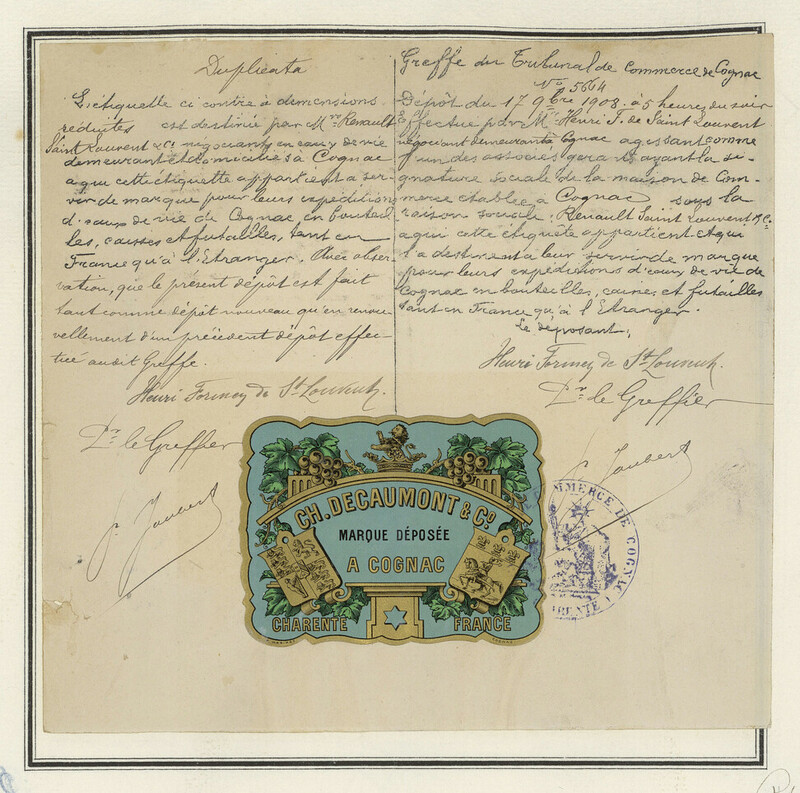 Duplicata
L'étiquette ci contre à dimensions
réduites est destinée par Mrs Renault
Saint Louvent & Co négociants en eaux de vie
demeurant et domiciliés à Cognac
a qui cette étiquette appartient a ser-
vir de marque pour leurs expéditions
d'eaux de vie de Cognac, en bouteil-
les, caisses et futailles, tant en
France qu'à l'Etranger. Avec obser-
vation, que le présent dépôt est fait
tant comme dépôt nouveau qu'en renou-
vellement d'un précédent dépôt effec-
tué audit Greffe.
Henri Formey de St Louvent.
Pr le Greffier
J. Joubert
Greffe du Tribunal de Commerce de Cognac
No 5664
Dépôt du 17 9bre 1908. à 5 heures du soir
Effectué par Mr Henri F. de Saint Louvent
négociant demeurant à Cognac agissant comme
l'un des associés gérants ayant la si-
gnature sociale de la maison de Com-
merce établie à Cognac sous la
raison sociale: Renault Saint Louvent & Co.
a qui cette étiquête appartient et qui
l'a destinent a leur servir de marque
pour leurs expéditions d'eaux de vie de
Cognac en bouteilles, caisses, et futailles
tant en France qu'à l'Etranger.
Le déposant,
Henri Formey de St Louvent.
Pr le Greffier
J. Joubert
CH. DECAUMONT & Co
MARQUE DÉPOSÉE
A COGNAC
CHARENTE FRANCE
COMMERCE DE COGNAC